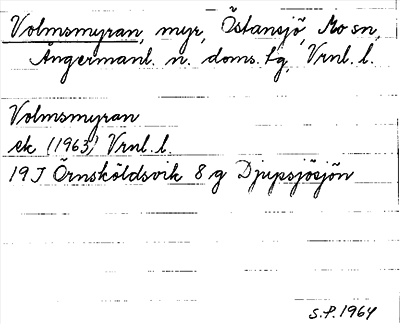 Volmsmyran, myr, Östansjö, Mo sn,
Ångermanl. n. doms. tg, Vrnl. l.
Volmsmyran
ek (1963) Vrnl. l.
19J Örnsköldsvik 8 g Djupsjösjön
S.P. 1964